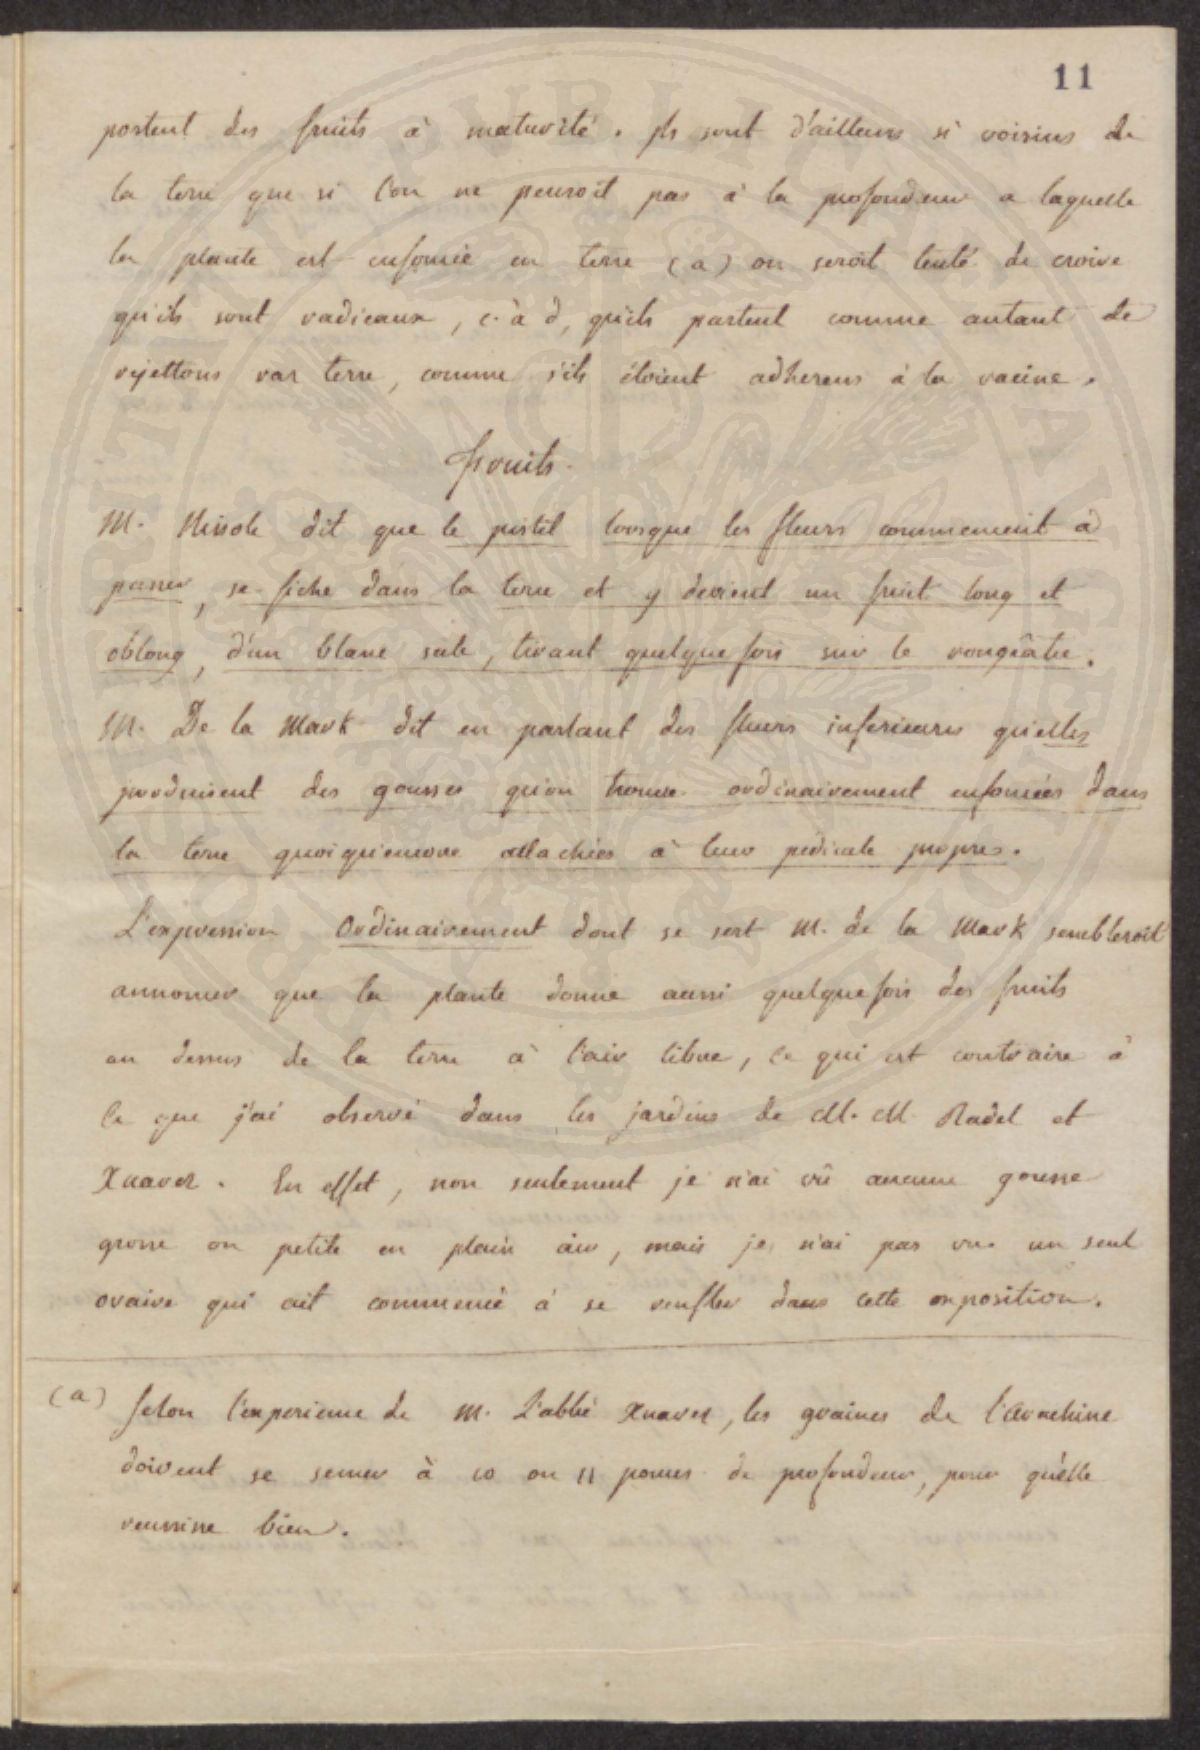 11
portent des fruits à maturité. ils sont d'ailleurs si voisins de
la terre que si l'on ne pensoit pas à la profondeur a laquelle
la plante est enfoncée en terre (a) on seroit tenté de croire
qu'ils sont radicaux, c. à d, qu'ils partent comme autant de
rejettons ras terre, comme s'ils étoient adherens à la racine.
fruits.
M. Nissole dit que le pistil lorsque les fleurs commencent à
passer, se fiche dans la terre et y devient un fruit long et
oblong, d'un blanc sale, tirant quelque fois sur le rougeâtre.
M. De la Mark dit en parlant des fleurs inferieures qu'elles
produisent des gousses qu'on trouve ordinairement enfoncées dans
la terre quoiqu'encore attachées à leur pedicule propres.
L'expression Ordinairement dont se sert M. de la Mark sembleroit
annoncer que la plante donne aussi quelque fois des fruits
au dessus de la terre à l'air libre, ce qui est contraire à
ce que j'ai observé dans les jardins de M. M Radel et
Xuarez. En effet, non seulement je n'ai vû aucune gousse
grosse ou petite en plain air, mais je n'ai pas vu un seul
ovaire qui ait commencé à se renfler dans cette exposition.
(a) Selon l'experience de M. L'abbé Xuarez, les graines de l'Arachine
doivent se semer à 10 ou 11 pouces de profondeur, pour qu'elle
reussisse bien.